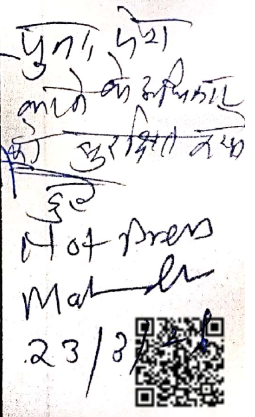 पुनः पेश
करने के अधिकार
को सुरक्षित रखते
हुए
Not Press
23/3/